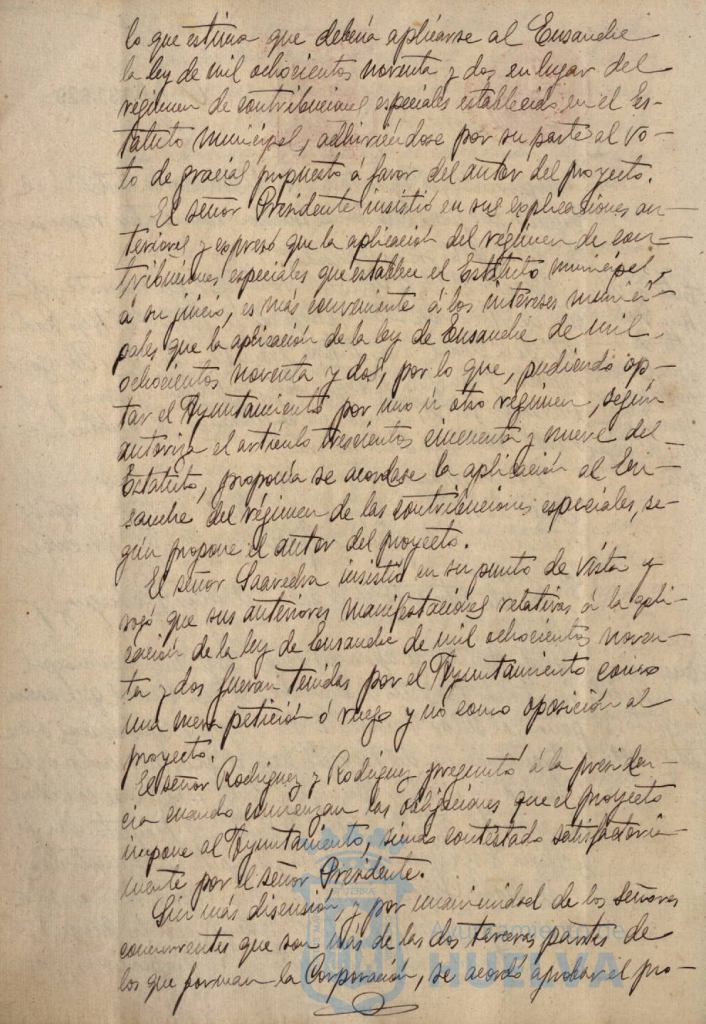 lo que estima que debería aplicarse al Ensanche
la ley de mil ochocientos noventa y dos en lugar del
régimen de contribuciones especiales establecido en el Es-
tatuto municipal, adhiriéndose por su parte al vo-
to de gracias propuesto á favor del autor del proyecto.
El señor Presidente insistió en sus explicaciones an-
teriores y expresó que la aplicación del régimen de con-
tribuciones especiales que establece el Estatuto municipal,
á su juicio, es más conveniente á los intereses munici-
pales que la aplicación de la ley de Ensanche de mil
ochocientos noventa y dos, por lo que, pudiendo op-
tar el Ayuntamiento por uno ú otro régimen, según
autoriza el artículo trescientos cincuenta y nueve del
Estatuto, proponía se acordase la aplicación al En-
sanche del régimen de las contribuciones especiales, se-
gún propone el autor del proyecto.
El señor Saavedra insistió en su punto de vista y
rogó que sus anteriores manifestaciones relativas á la apli-
cación de la ley de Ensanche de mil ochocientos noven-
ta y dos fueran tenidas por el Ayuntamiento como
una mera petición ó ruego y no como oposición al
proyecto.
El señor Rodríguez y Rodríguez preguntó á la presiden-
cia cuando comienzan las obligaciones que el proyecto
impone al Ayuntamiento, siendo contestado satisfactoria-
mente por el señor Presidente.
Sin más discusión, y por unanimidad de los señores
concurrentes que son más de las dos terceras partes de
los que forman la Corporación, se acordó aprobar el pro-
HUELVA